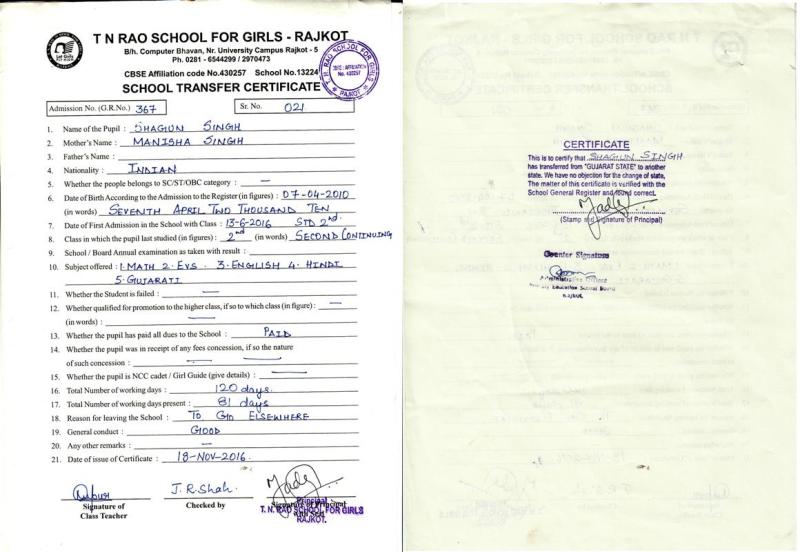 T N RAO SCHOOL FOR GIRLS - RAJKOT
B/h. Computer Bhavan, Nr. University Campus Rajkot - 5
Ph. 0281 - 6544299 / 2970473
CBSE Affiliation code No.430257 School No.13224
SCHOOL TRANSFER CERTIFICATE
T. N. RAO SCHOOL FOR GIRLS
CBSE : AFFILIATION
No. 430257
RAJKOT
Admission No. (G.R.No.) 367 Sr. No. 021
1. Name of the Pupil : SHAGUN SINGH
2. Mother's Name : MANISHA SINGH
3. Father's Name :
4. Nationality : INDIAN
5. Whether the people belongs to SC/ST/OBC category : —
6. Date of Birth According to the Admission to the Register (in figures) : 07-04-2010
(in words) SEVENTH APRIL TWO THOUSAND TEN
7. Date of First Admission in the School with Class : 13-6-2016 STD 2nd.
8. Class in which the pupil last studied (in figures) : 2nd (in words) SECOND CONTINUING
9. School / Board Annual examination as taken with result :
10. Subject offered : 1. MATH 2. EVS. 3. ENGLISH 4. HINDI
5. GUJARATI
11. Whether the Student is failed : —
12. Whether qualified for promotion to the higher class, if so to which class (in figure) : —
(in words) : —
13. Whether the pupil has paid all dues to the School : PAID
14. Whether the pupil was in receipt of any fees concession, if so the nature
of such concession : —
15. Whether the pupil is NCC cadet / Girl Guide (give details) : —
16. Total Number of working days : 120 days.
17. Total Number of working days present : 81 days
18. Reason for leaving the School : TO GO ELSEWHERE
19. General conduct : GOOD
20. Any other remarks : —
21. Date of issue of Certificate : 18-NOV-2016.
J. R. Shah.
Signature of
Class Teacher
Checked by
Signature of Principal
with Seal
Principal
T. N. RAO SCHOOL FOR GIRLS
RAJKOT.
CERTIFICATE
This is to certify that SHAGUN SINGH
has transferred from "GUJARAT STATE" to another
state. We have no objection for the change of state,
The matter of this certificate is verified with the
School General Register and found correct.
(Stamp and Signature of Principal)
Counter Signature
Administrative Officer
Education School Board
RAJKOT.